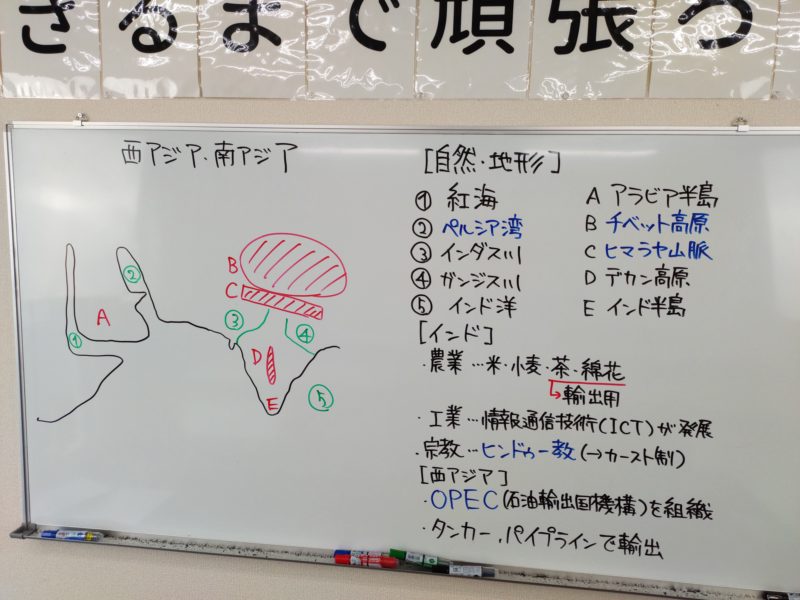 きるまで頑張ろ
西アジア・南アジア
B
C
②
A
①
③
④
D
E
⑤
[自然・地形]
① 紅海 A アラビア半島
② ペルシア湾 B チベット高原
③ インダス川 C ヒマラヤ山脈
④ ガンジス川 D デカン高原
⑤ インド洋 E インド半島
[インド]
・農業…米・小麦・茶・綿花
→輸出用
・工業…情報通信技術(ICT)が発展
・宗教…ヒンドゥー教(→カースト制)
[西アジア]
・OPEC(石油輸出国機構)を組織
・タンカー、パイプラインで輸出